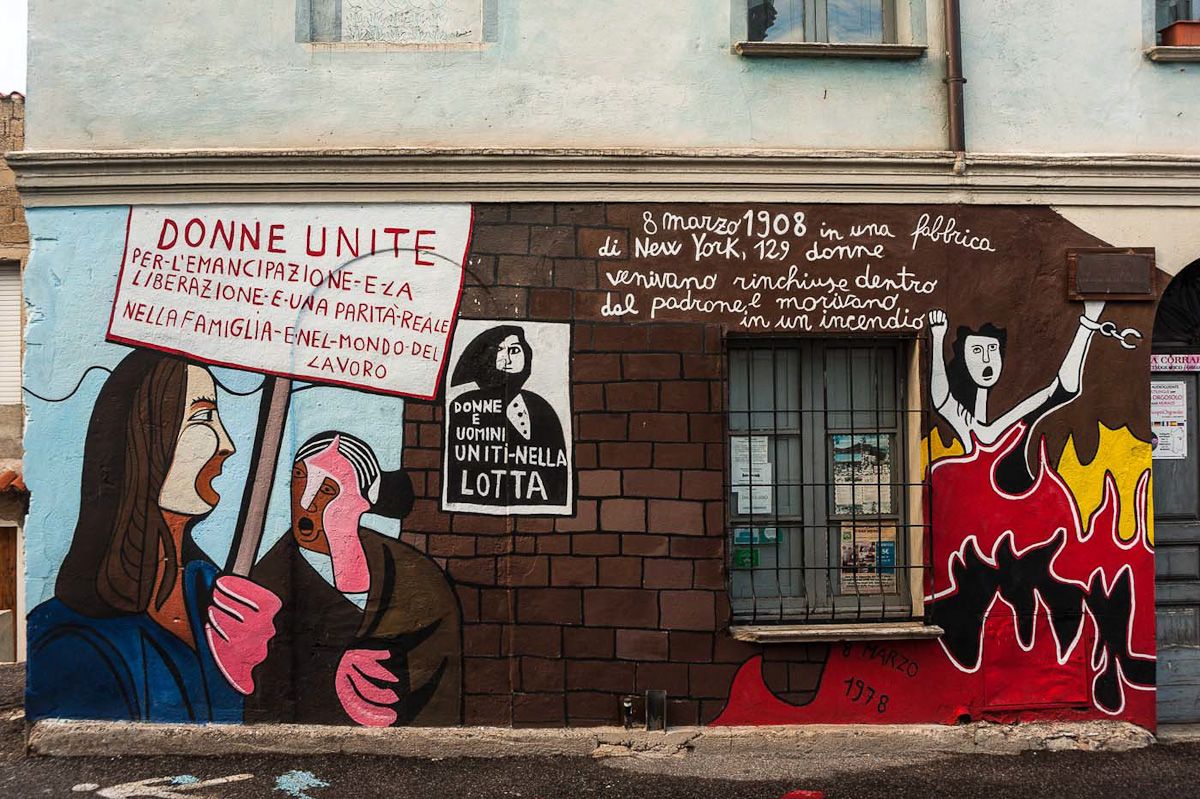 DONNE UNITE
PER-L'EMANCIPAZIONE-E-LA
LIBERAZIONE-E-UNA PARITÀ-REALE
NELLA FAMIGLIA-E-NEL-MONDO-DEL
LAVORO
DONNE
E
UOMINI
UNITI-NELLA
LOTTA
8 marzo 1908 in una fabbrica
di New York, 129 donne
venivano rinchiuse dentro
dal padrone e morivano
in un incendio
8 MARZO
1978